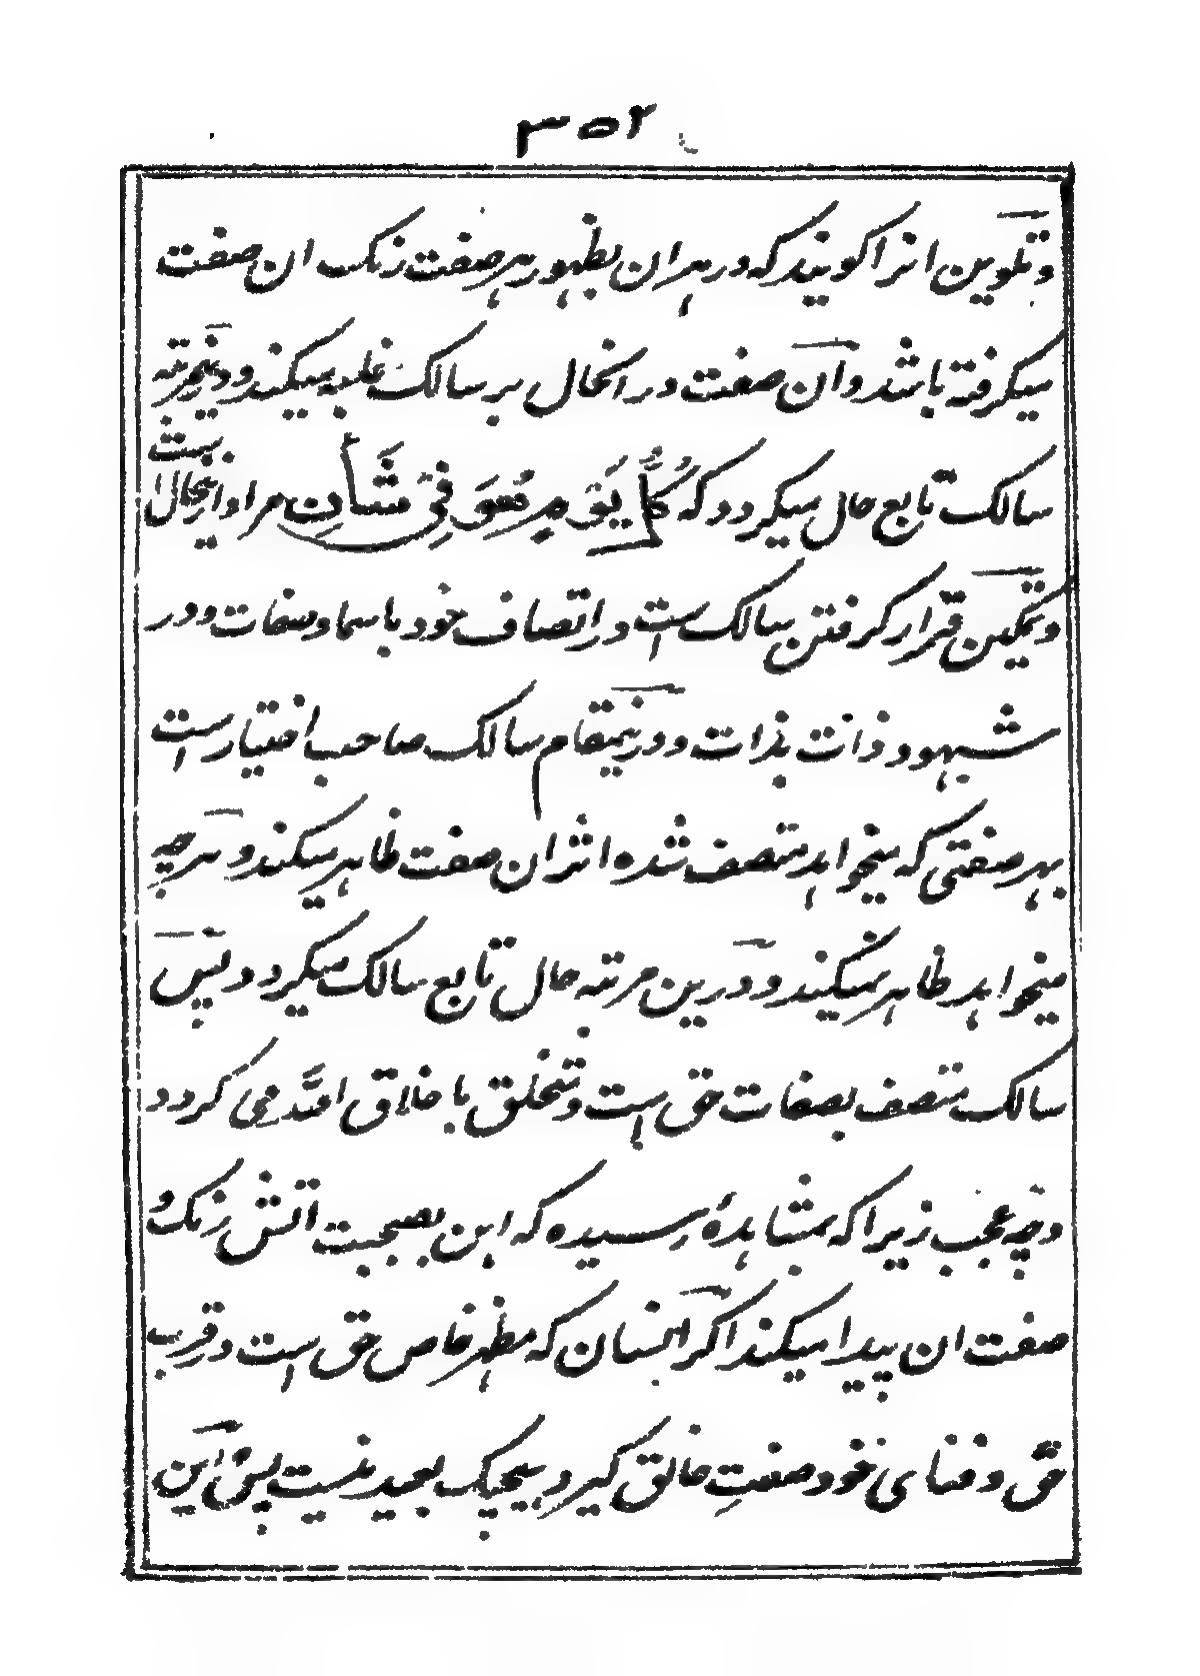 ۳۵۲
وتلوین انرا کویند که در هر ان بظهور هر صفت رنک ان صفت
میکرفته باشد وان صفت در انحال بر سالک غلبه میکند ودرینمرتبه
سالک تابع حال میکردد که كُلَّ يَوْمٍ هُوَ فِي شَأْنٍ مراد ازینحال است
وتمکین قرار کرفتن سالک است در اتصاف خود باسما وصفات ودر
شهود ذات بذات ودرینمقام سالک صاحب اختیار است
بهر صفتی که میخواهد متصف شده اثر ان صفت ظاهر میکند وهرچه
میخواهد ظاهر میکند ودرین مرتبه حال تابع سالک میکردد پس
سالک متصف بصفات حق است ومتخلق باخلاق الله می کردد
وچه عجب زیرا که بمشاهدهٔ رسیده که اهن بصحبت اتش رنک و
صفت ان پیدا میکند اکر انسان که مظهر خاص حق است در قرب
حق وفنای خود صفت خالق کیرد هیچیک بعید نیست پس این